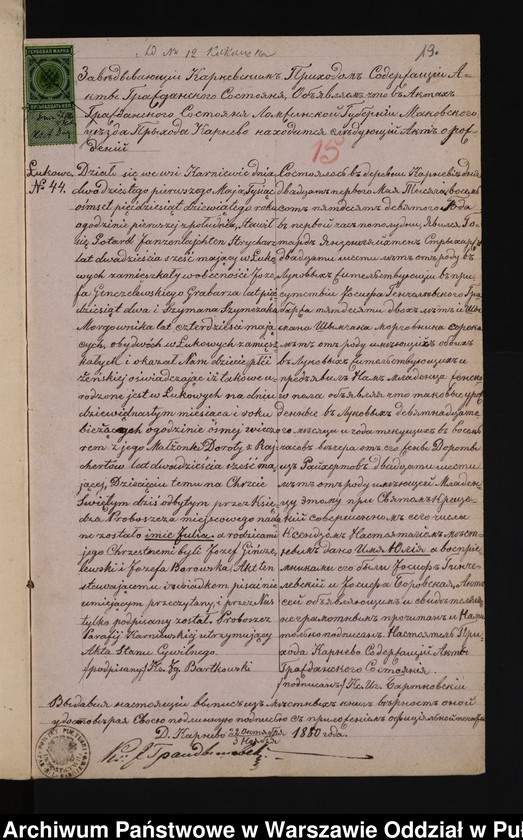 До № 12 Клклеса
19.
ГЕРБОВАЯ МАРКА
Завѣдывающій Карневскимъ Приходомъ Содержащій А-
кты Гражданскаго Состоянія, Объявляетъ что въ Актахъ
Гражданскаго Состоянія Ломжинской Губерніи Маковскаго
уѣзда Прихода Карнево находится слѣдующій Актъ о рож
деніи
15
Łukowe
№ 44.
Dział się we wsi Karniewie dnia
dwudziestego pierwszego Maja, Tysiąc
ośmset pięćdziesiąt dziewiątego roku
ogodzinie pierwszej z południa, stawił
się Gotard Janzon
lat dwadzieścia sześć mający w Łuko
wych zamieszkały w obecności Joze
fa Genczelewskiego Grabarza lat pię
dziesiąt dwa i Szymana Szymczaka
Morgownika lat czterdzieści mają
cych, obydwóch w Łukowych zamiesz
kałych i okazał Nam dziecie płci
żeńskiej oświadczając iż takowe u-
rodzone jest w Łukowych na dniu
dziewiętnastym miesiąca i roku
bieżących ogodzinie ósmej wieczo
rem z jego Małżonki Doroty z Raj
chertów lat dwadzieścia sześć ma
jącej, Dziecięciu temu na Chrzcie
Świętym dziś odbytym przez Księ-
dza Proboszcza miejscowego nada
ne zostało imie Julia, a rodzicami
jego Chrzestnemi byli Józef Gińcze
lewski i Józefa Borowska, Akt ten
stawającemu i świadkom pisać nie
umiejącym przeczytany, i przez Nas
tylko podpisany został. Proboszcz
Parafji Karniewskiej utrzymujący
Akta Stanu Cywilnego.
(podpisany) Ks. Ig. Bartkowski
Состоялось въ деревнѣ Карневѣ дня
двадцать перваго Мая Тысяча восемь
сотъ пятьдесятъ девятаго Года
въ первой часъ пополудни, Явился Го-
тардъ
двадцати шести лѣтъ отъ роду въ
Луковыхъ жительствующій въ при-
сутствіи Іосифа Генчелевскаго Гра
баржа пятьдесяти двохъ лѣтъ и Ши
мана Шымчака морговника сорока
лѣтъ отъ роду имеющихъ обоихъ
въ Луковыхъ жительствующихъ и
предъявилъ Намъ Младенца женска
го пола объявляя что таковый рож
денный въ Луковыхъ девятнадцата
го мѣсяца и года текущихъ въ восемь
часовъ вечера отъ его жены Дороты
изъ Райхертовъ двадцати шести
лѣтъ отъ роду имеющей Младен
цу этому при Святомъ Креще
ніи совершенномъ сего числа
Ксендзомъ Настоятелемъ мѣст-
нымъ дано Имя Юлія а воспріе
мниками его были Іосифъ Гинче-
левскій и Іосифа Боровская, Актъ
сей объявляющимъ и свидѣтелямъ
не грамотнымъ прочитанъ и Нами
только подписанъ. Настоятель При-
хода Карнево Содержащій Акты
Гражданскаго Состоянія
(подписалъ) Кс. Иг. Бартковскій
Выдавая настоящій выпись изъ мѣстныхъ книгъ вѣрность оной
удостовѣряя Своею подлинною подписью съ приложеніемъ офиціальной печати
Д. Карнево 22 Октября 3 Ноября 1880 года.
Archiwum Państwowe w Warszawie Oddział w Puł